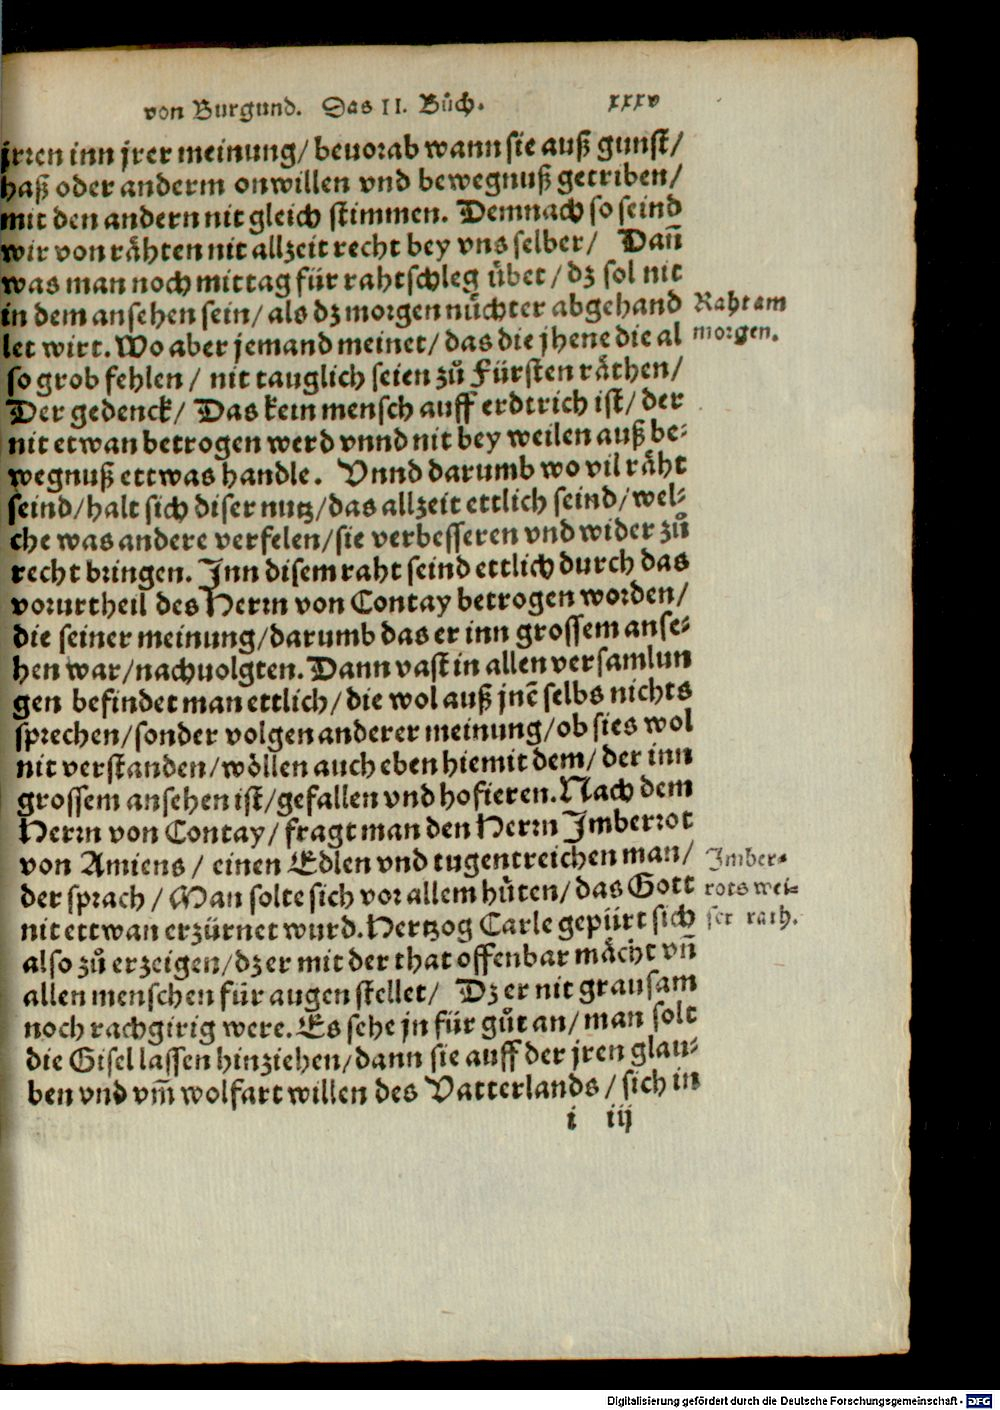 von Burgund. Das II. Bůch. xxxv
jrren inn jrer meinung/ beuorab wann sie auß gunst/
haß oder anderm onwillen vnd bewegnuß getriben/
mit den andern nit gleich stimmen. Demnach so seind
wir von rähten nit allzeit recht bey vns selber/ Dañ
was man noch mittag für rahtschleg übet/ dz sol nit
in dem ansehen sein/ als dz morgen nüchter abgehand
Raht am
morgen.
let wirt. Wo aber jemand meinet/ das die jhene die al
so grob fehlen/ nit tauglich seien zů Fürsten räthen/
Der gedenck/ Das kein mensch auff erdtrich ist/ der
nit etwan betrogen werd vnnd nit bey weilen auß be-
wegnuß ettwas handle. Vnnd darumb wo vil räht
seind/ halt sich diser nutz/ das allzeit ettlich seind/ wel-
che was andere verfelen/ sie verbesseren vnd wider zů
recht bringen. Inn disem raht seind ettlich durch das
vorurtheil des Herrn von Contay betrogen worden/
die seiner meinung/ darumb das er inn grossem anse-
hen war/ nachuolgten. Dann vast in allen versamlun
gen befindet man ettlich/ die wol auß jnẽ selbs nichts
sprechen/ sonder volgen anderer meinung/ ob sies wol
nit verstanden/ wöllen auch eben hiemit dem/ der inn
grossem ansehen ist/ gefallen vnd hofieren. Nach dem
Herrn von Contay/ fragt man den Herrn Imberrot
von Amiens/ einen Edlen vnd tugentreichen man/
Imber-
rots wei-
ser rath.
der sprach/ Man solte sich vor allem hüten/ das Gott
nit ettwan erzürnet wurd. Hertzog Carle gepürt sich
also zů erzeigen/ dz er mit der that offenbar mächt vñ
allen menschen für augen stellet/ Dz er nit grausam
noch rachgirig were. Es sehe jn für gůt an/ man solt
die Gisel lassen hinziehen/ dann sie auff der jren glau-
ben vnd vm̃ wolfart willen des Vatterlands/ sich in
i iij
Digitalisierung gefördert durch die Deutsche Forschungsgemeinschaft - DFG